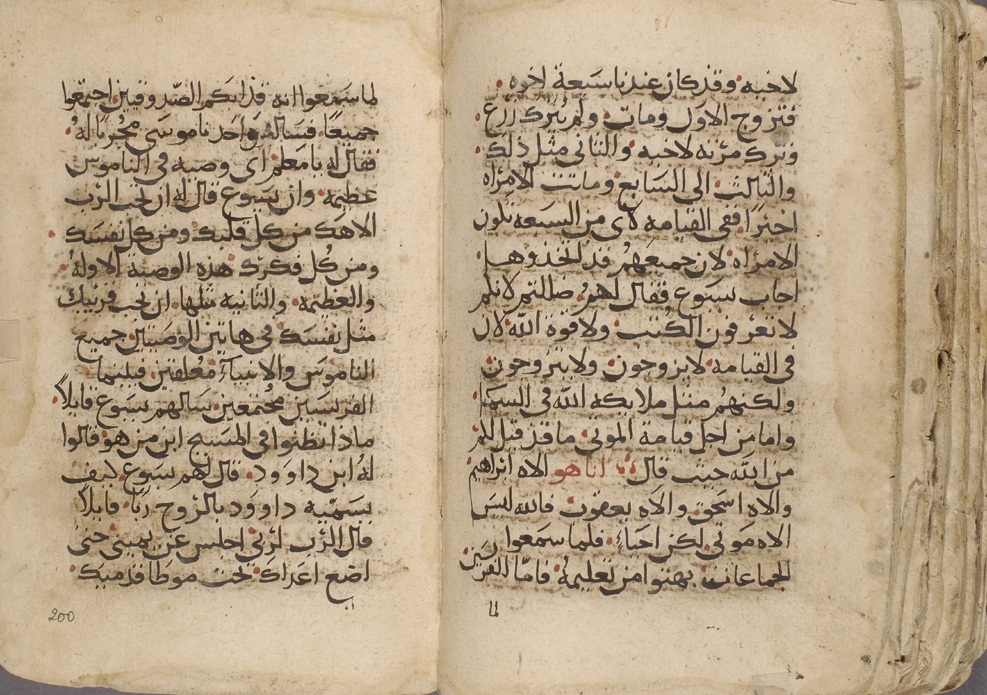 لاخيه وقد كان عندنا سبعة اخوه
فتزوج الاول ومات ولم يترك زرع
وترك مرته لاخيه والثاني مثل ذلك
والثالث الى السابع وماتت الامراه
اخيرًا ففي القيامه لاي من السبعه تكون
الامراه لان جميعهم قد اتخذوها
اجاب يسوع فقال لهم ضاللتم لانكم
لا تعرفون الكتب ولا قوة الله لان
في القيامه لا يزوجون ولا يتزوجون
ولكنهم مثل ملايكة الله في السما
واما من اجل قيامة الموتى ما قد قيل لكم
من الله حيث قال انا هو الاه ابراهيم
والاه اسحق والاه يعقوب فالله ليس
الاه موتى لكن احياء فلما سمعوا
الجماعات بهتوا من تعليمه فامّا الفريسين
11
لما سمعوا انه قد ابكم الصدوقيين اجتمعوا
جميعًا فساله واحد ناموسي مجربًا له
فقال له يا معلم اي وصيه في الناموس
عظيمه وان يسوع قال له ان تحب الرّب
الاهك من كل قلبك ومن كل نفسك
ومن كل فكرك هذه الوصية الاوله
والعظيمه والثانيه مثلها ان تحب قريبك
مثل نفسك في هاتين الوصيتين جميع
الناموس والانبياء معلقين فبينما
الفريسيين مجتمعين سالهم يسوع قايلاً
ماذا تظنوا في المسيح ابن من هو قالوا
له ابن داوود قال لهم يسوع كيف
يسمّيه داوود بالروح ربًا قايلاً
قال الرّب لربي اجلس عن يميني حتى
اضع اعداك تحت موطا قدميك
200